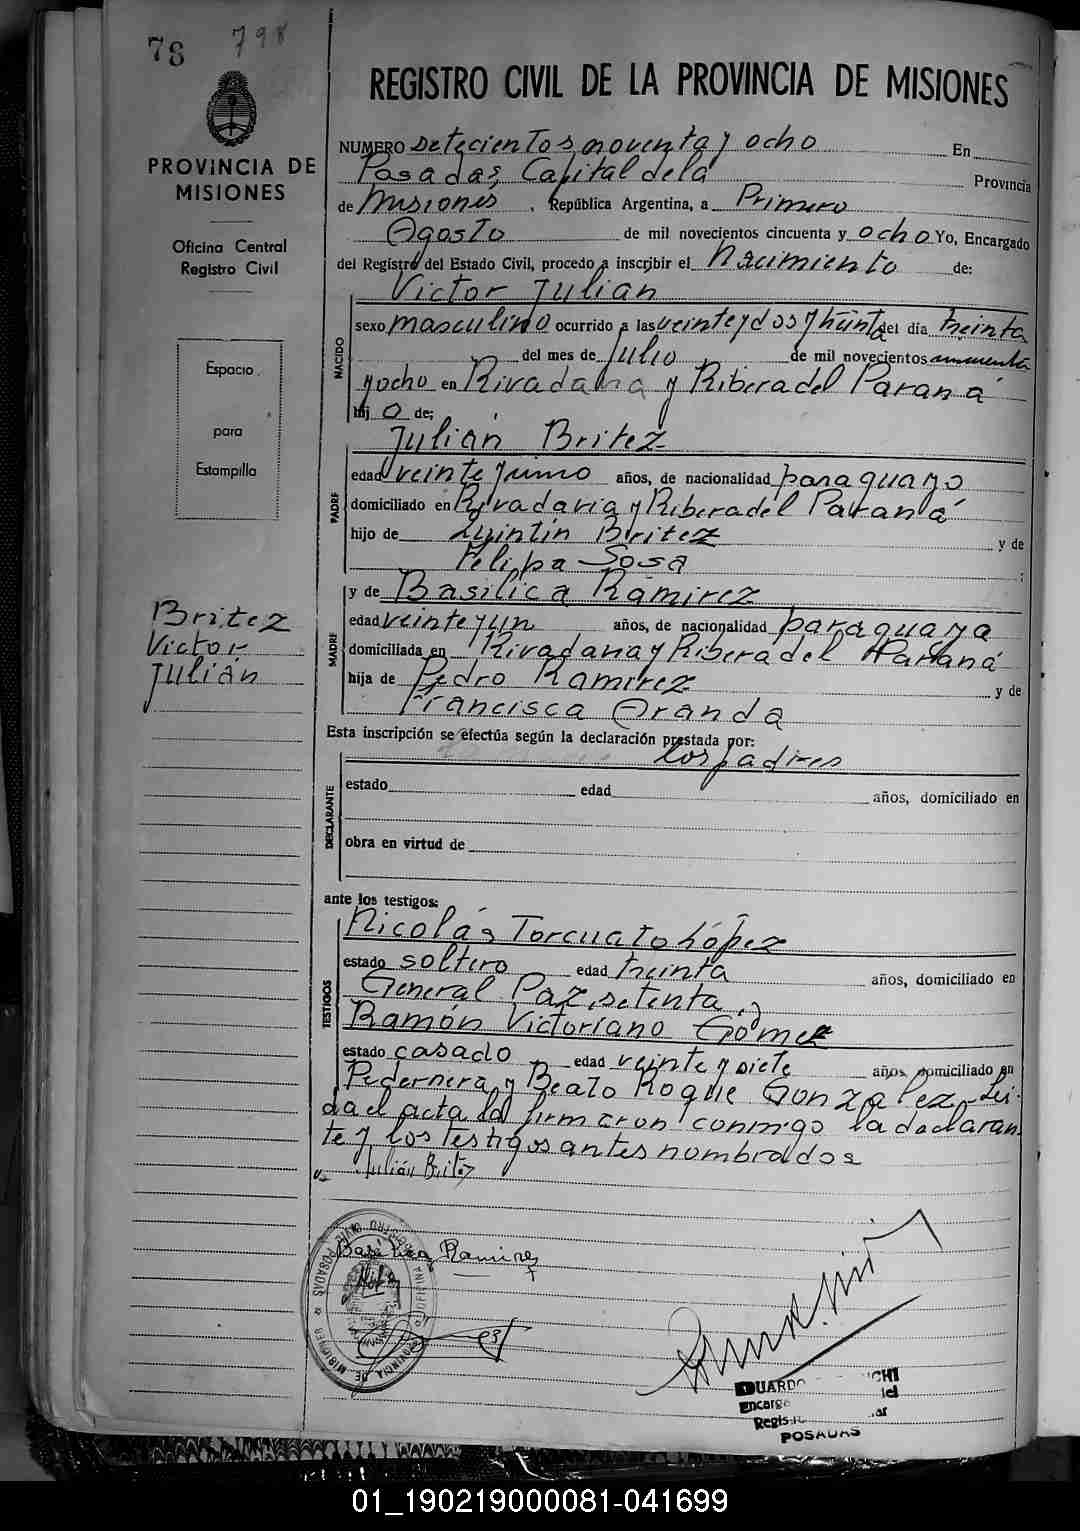 78 798
REGISTRO CIVIL DE LA PROVINCIA DE MISIONES
PROVINCIA DE
MISIONES
Oficina Central
Registro Civil
Espacio
para
Estampilla
Britez
Victor
Julián
NUMERO setecientos noventa y ocho En
Posadas, Capital de la Provincia
de Misiones, República Argentina, a Primero
Agosto de mil novecientos cincuenta y ocho Yo, Encargado
del Registro del Estado Civil, procedo a inscribir el Nacimiento de:
Victor Julian
NACIDO
sexo masculino ocurrido a las veinte y dos y treinta del día treinta
del mes de Julio de mil novecientos cincuenta
y ocho en Rivadavia y Ribera del Paraná
hij o de:
Julián Britez
PADRE
edad veinte y uno años, de nacionalidad paraguayo
domiciliado en Rivadavia y Ribera del Paraná
hijo de Quintín Britez y de
Felipa Sosa ;
y de Basilica Ramirez
MADRE
edad veinte y un años, de nacionalidad paraguaya
domiciliada en Rivadavia y Ribera del Paraná
hija de Pedro Ramirez y de
Francisca Aranda
Esta inscripción se efectúa según la declaración prestada por:
los padres
DECLARANTE
estado edad años, domiciliado en
obra en virtud de
ante los testigos:
TESTIGOS
Nicolás Torcuato López
estado soltero edad treinta años, domiciliado en
General Paz setenta y
Ramón Victoriano Gómez
estado casado edad veinte y siete años, domiciliado en
Pedernera y Beato Roque Gonzalez. Leí-
da el acta la firmaron conmigo la declaran
te y los testigos antes nombrados
Julián Britez
Basilica Ramirez
POSADAS